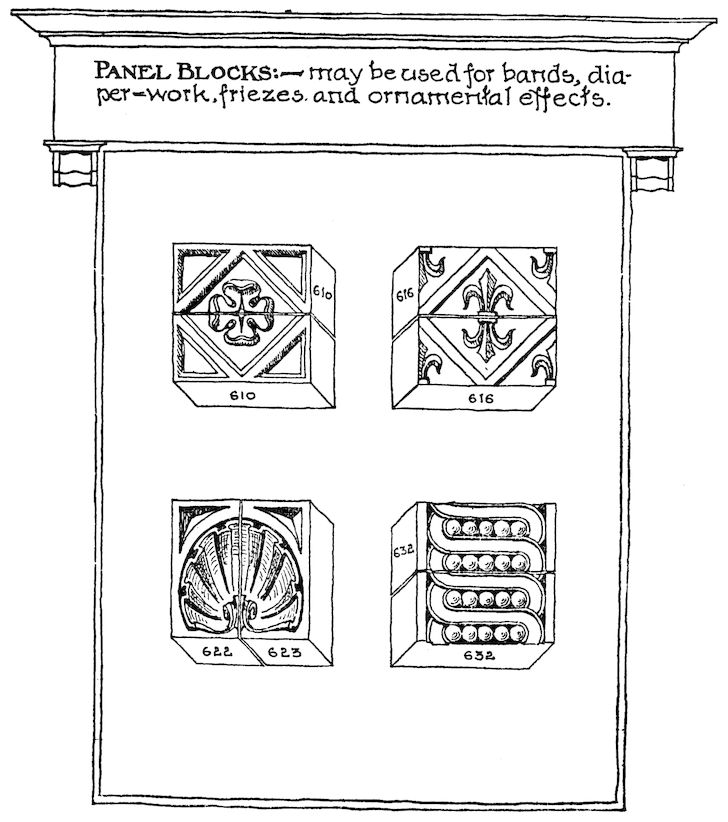 PANEL BLOCKS:— may be used for bands, dia-
per-work, friezes. and ornamental effects.
610
616
610
616
632
622 623
632